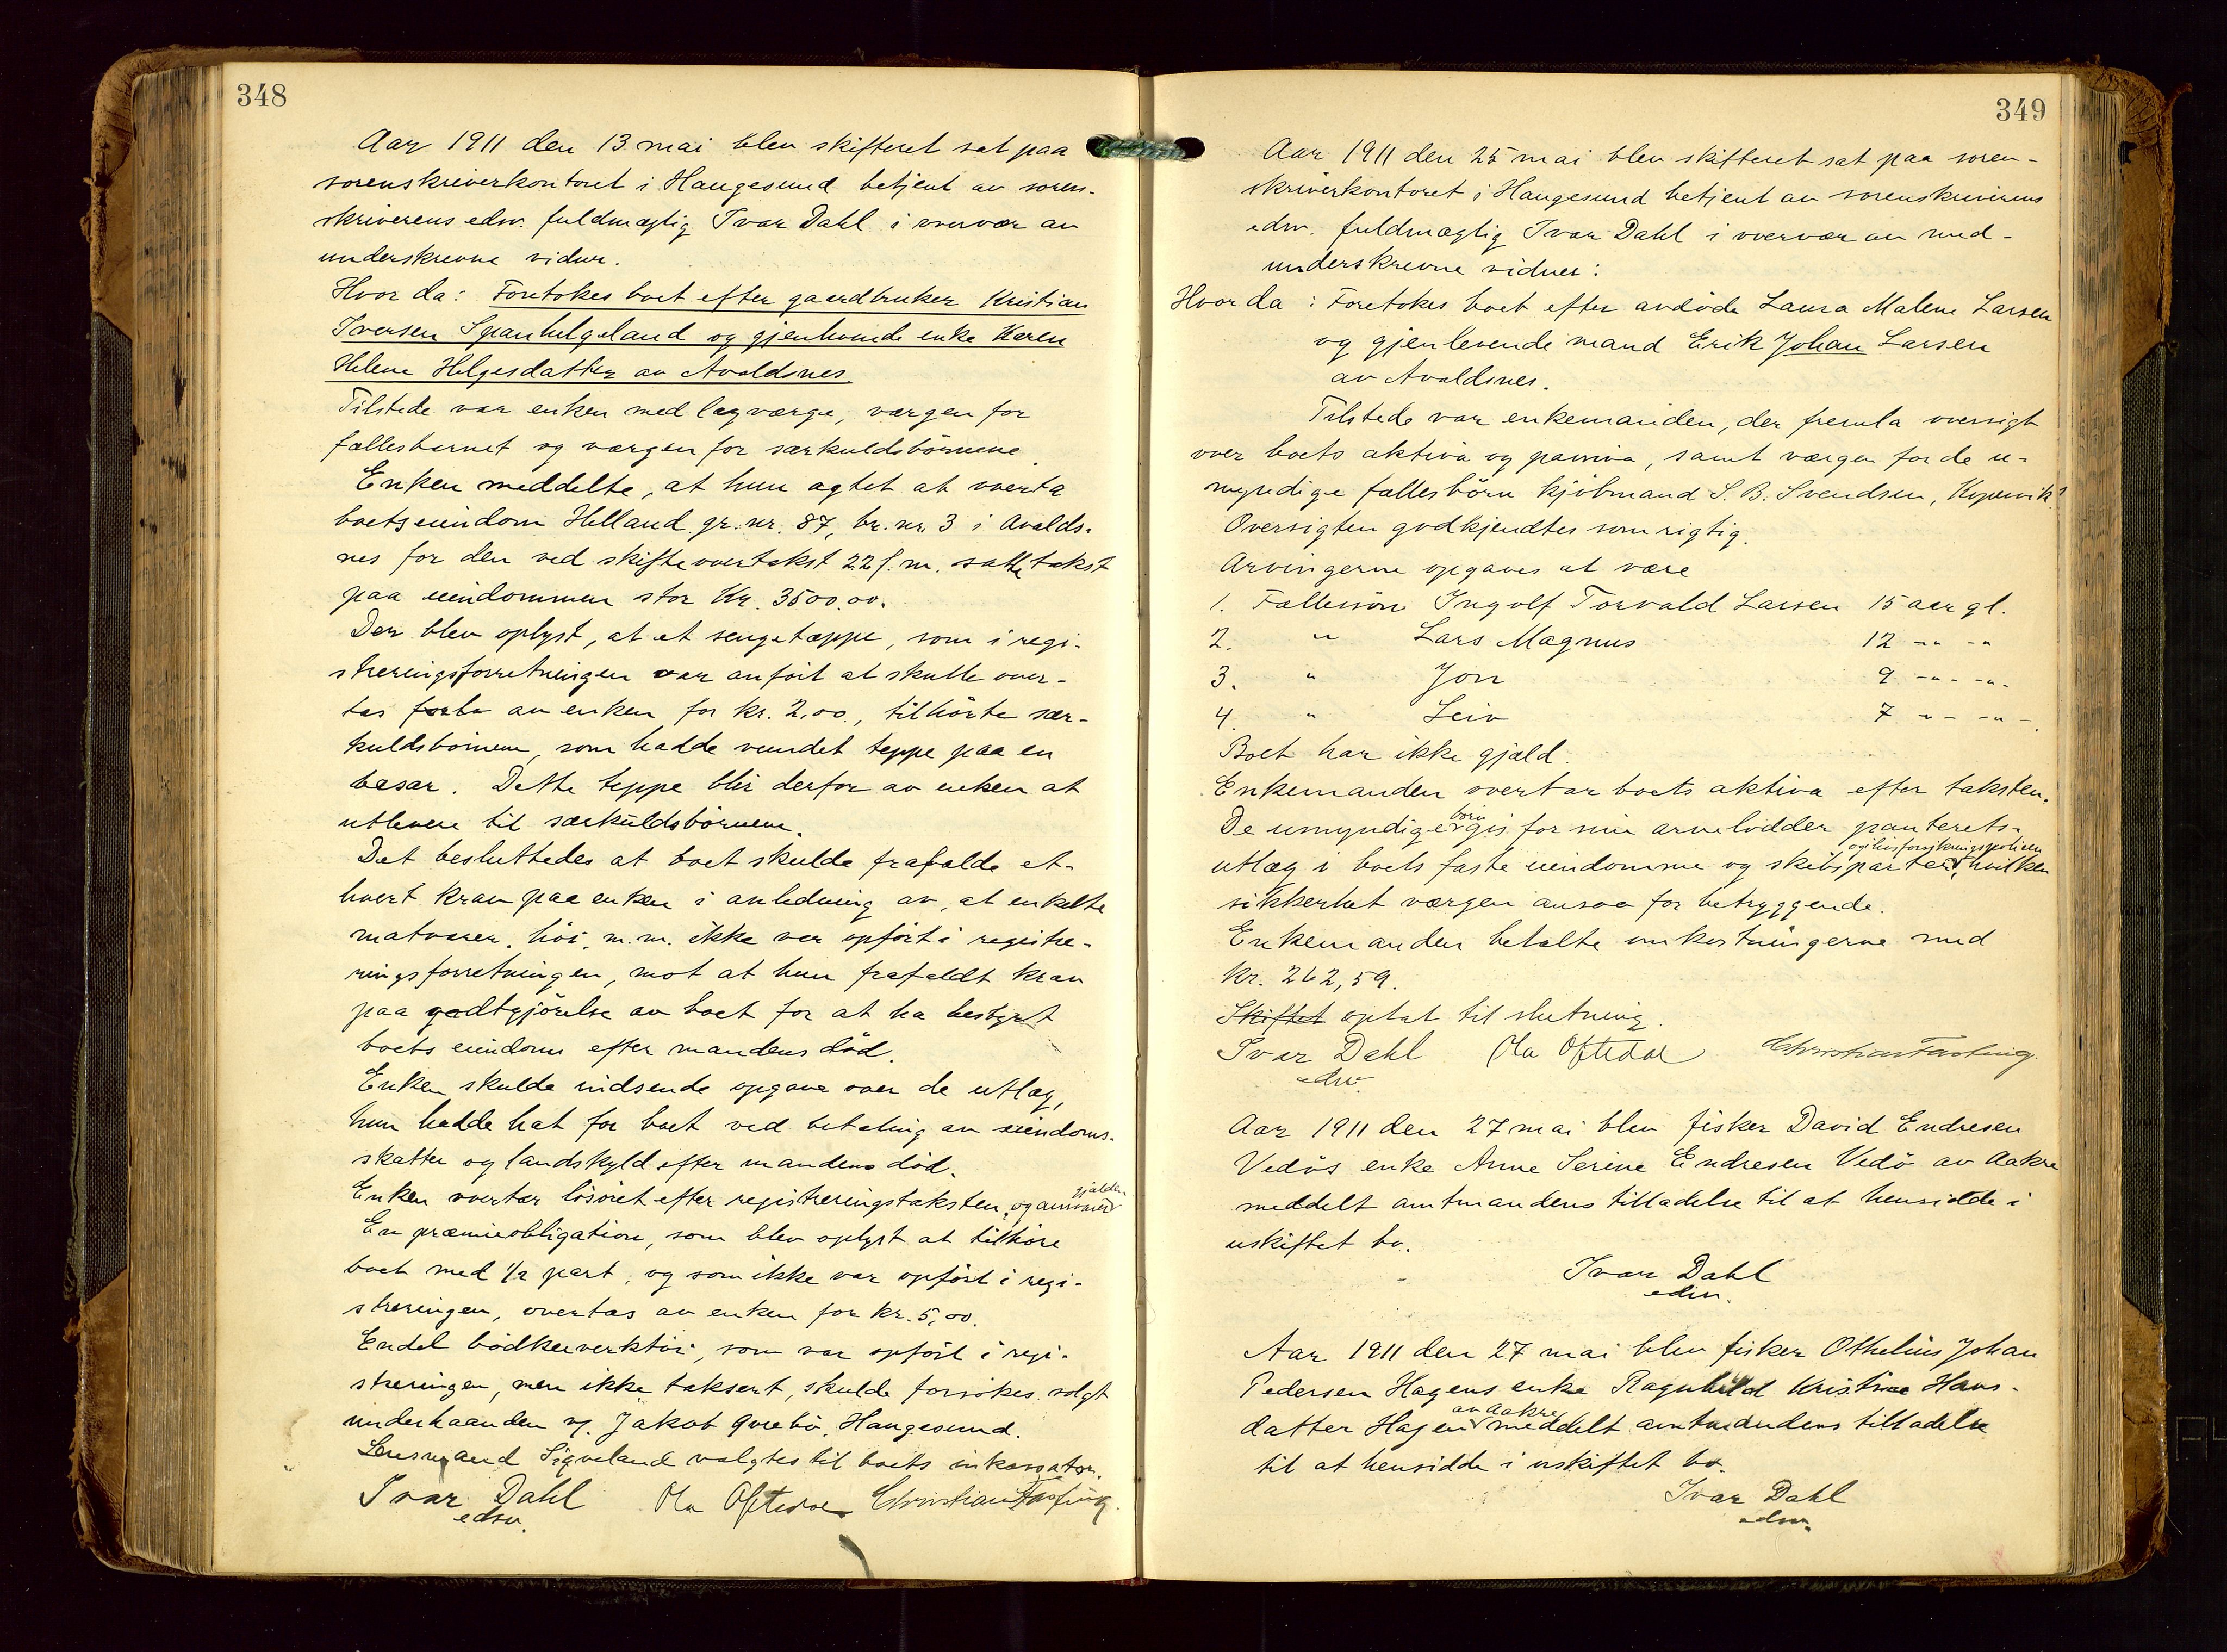 348
Aar 1911 den 13 mai blev skifteret sat paa
sorenskriverkontoret i Haugesund betjent av soren-
skriverens edsv. fuldmægtig Ivar Dahl i overvær av
underskrevne vidner.
Hvor da: Foretokes boet efter gaardbruker Kristian
Iversen Spanhelgeland og gjenlevende enke Karen
Helene Helgesdatter av Avaldsnes.
Tilstede var enken med lagværge, værgen for
fællesbarnet og værgen for særkuldsbörnene.
Enken meddelte, at hun agtet at overta
boets eiendom Helland gr. nr. 87, br. nr. 3 i Avalds-
nes for den ved skifteovertakst 22 f. m. satte takst
paa eiendommen stor Kr. 3500.00.
Der blev oplyst, at et sengetæppe, som i regi-
streringsforretningen var anfört at skulle over-
tas av enken for kr. 2,00, tilhörte sær-
kuldsbörnene, som hadde vundet teppe paa en
basar. Dette teppe blir derfor av enken at
utlevere til særkuldsbörnene.
Det besluttedes at boet skulde frafalde et-
hvert krav paa enken i anledning av, at enkelte
matvarer, höi, m.m. ikke var opfört i registre-
ringsforretningen, mot at hun frafaldt krav
paa godtgjörelse av boet for at ha bestyrt
boets eiendom efter mandens död.
Enken skulde indsende opgave over de utlæg,
hun hadde hat for boet ved betaling av eiendoms-
skatter og landskyld efter mandens död.
Enken overtar lösöret efter registreringstaksten, og ansvarer gjælden
En præmieobligation, som blev oplyst at tilhöre
boet med 1/2 part, og som ikke var opfört i regi-
streringen, overtas av enken for kr. 5,00.
Endel bödkerverktöi, som var opfört i regi-
streringen, men ikke taksert, skulde forsökes solgt
underhaanden v. Jakob Qvrebö, Haugesund.
Lensmand Sigveland valgtes til boets inkassator.
Ivar Dahl Ola Oftedal Christian Fasting.
edsv.
349
Aar 1911 den 25 mai blev skifteret sat paa soren-
skriverkontoret i Haugesund betjent av sorenskriverens
edsv. fuldmægtig Ivar Dahl i overvær av med-
underskrevne vidner:
Hvor da: Foretokes boet efter avdöde Laura Malene Larsen
og gjenlevende mand Erik Johan Larsen
av Avaldsnes.
Tilstede var enkemanden, der fremla oversigt
over boets aktiva og passiva, samt værgen for de u-
myndige fællesbörn kjöbmand S. B. Svendsen, Kopervik.
Oversigten godkjendtes som rigtig.
Arvingerne opgaves at være
1. Fællessön Ingolf Torvald Larsen 15 aar gl.
2. " Lars Magnus 12 -"- -"
3. " Jon 9 -"- -"-
4. " Leiv 7 -"- -"-
Boet har ikke gjæld.
Enkemanden overtar boets aktiva efter taksten.
De umyndige börn gis for sine arvelodder panterets-
utlæg i boets faste eiendomme og skibsparter og i livsforsikringspolicen, hvilken
sikkerhet værgen ansaa for betryggende.
Enkemanden betalte omkostningerne med
kr. 262,59.
Skiftet optat til slutning.
Ivar Dahl Ola Oftedal Christian Fasting.
edsv.
Aar 1911 den 27 mai blev fisker David Endresen
Vedös enke Anne Serine Endresen Vedö av Aakre
meddelt amtmandens tilladelse til at hensidde i
uskiftet bo.
Ivar Dahl
edsv.
Aar 1911 den 27 mai blev fisker Othelius Johan
Pedersen Hagens enke Ragnhild Kristine Hans-
datter Hagen av Aakre meddelt amtmandens tilladelse
til at hensidde i uskiftet bo.
Ivar Dahl
edsv.